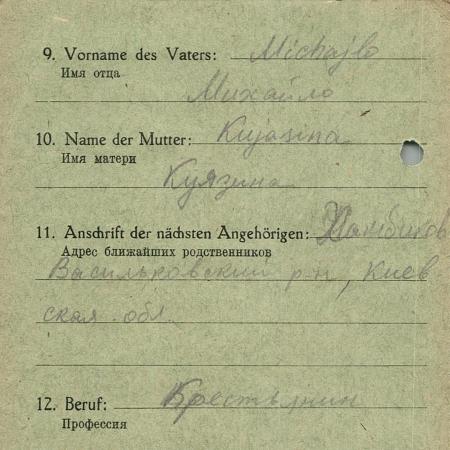 9. Vorname des Vaters: Michajlo
Имя отца
Михайло
10. Name der Mutter: Kujasina
Имя матери
Куязина
11. Anschrift der nächsten Angehörigen:
Адрес ближайших родственников
Васильковский р-н, Киев
ская обл.
12. Beruf: Крестьянин
Профессия